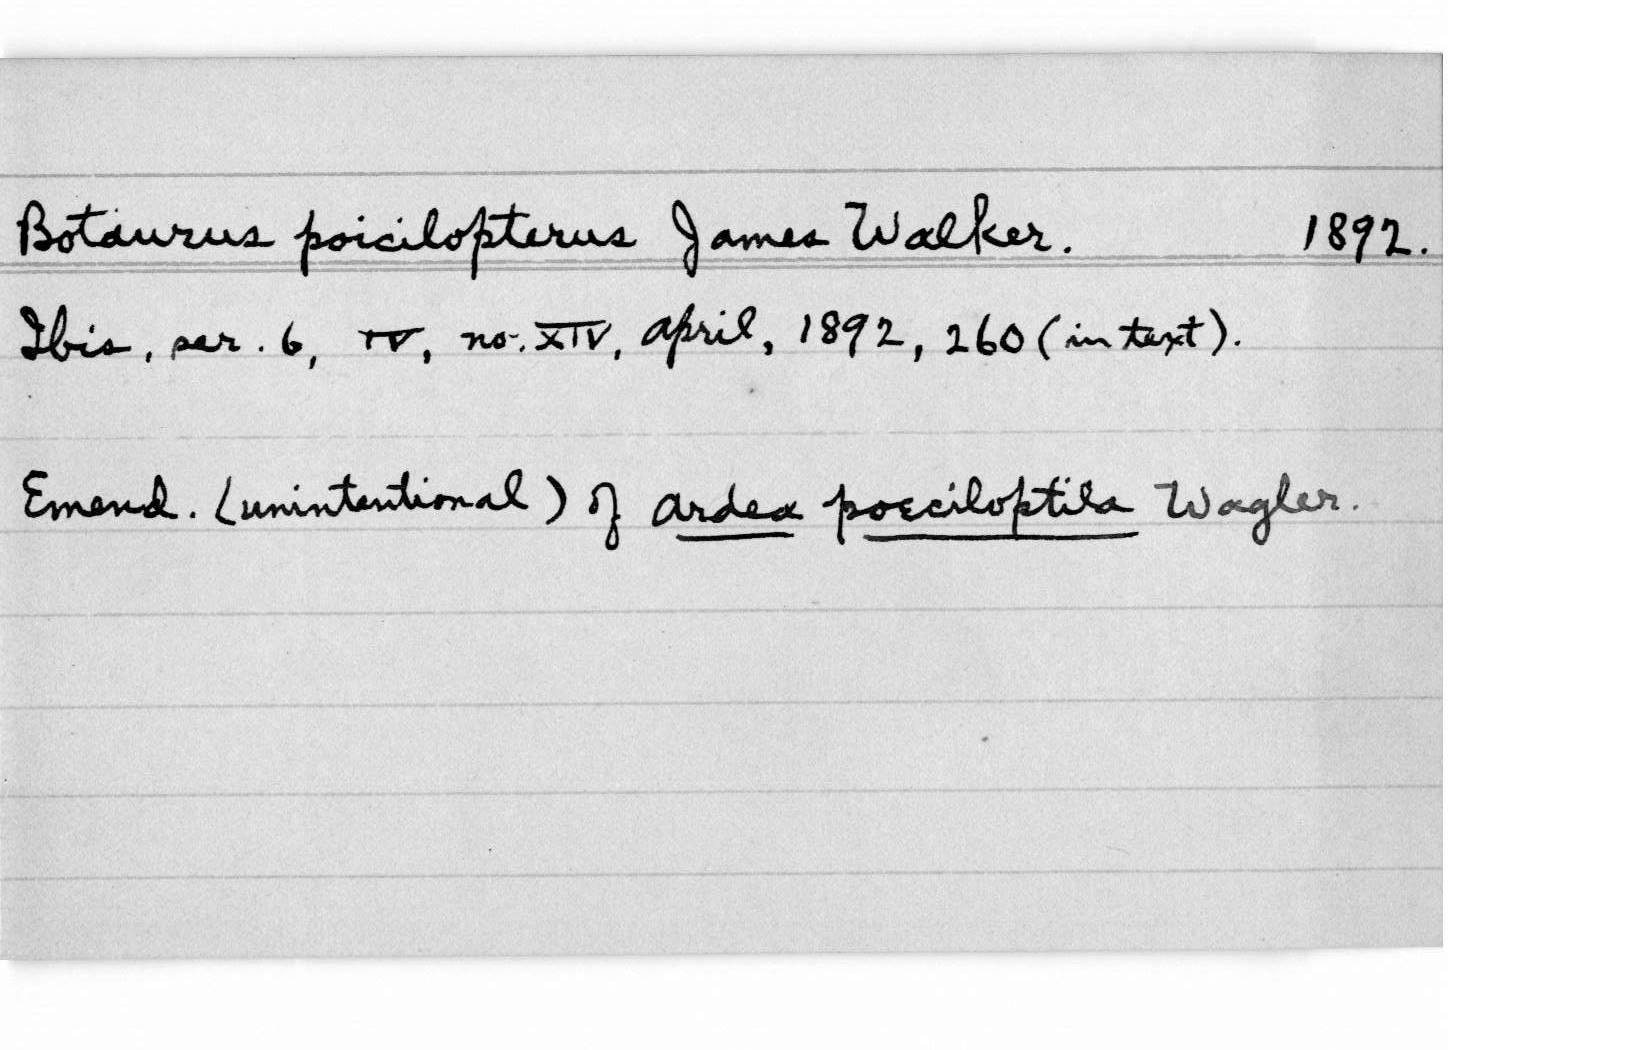 Botaurus poicilopterus James Walker. 1892.
Ibis, ser. 6, IV, no. XIV, April, 1892, 260 (in text).
Emend. (unintentional) of Ardea poeciloptila Wagler.